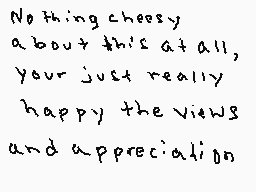 No thing cheesy
about this at all,
your just really
happy the views
and appreciation